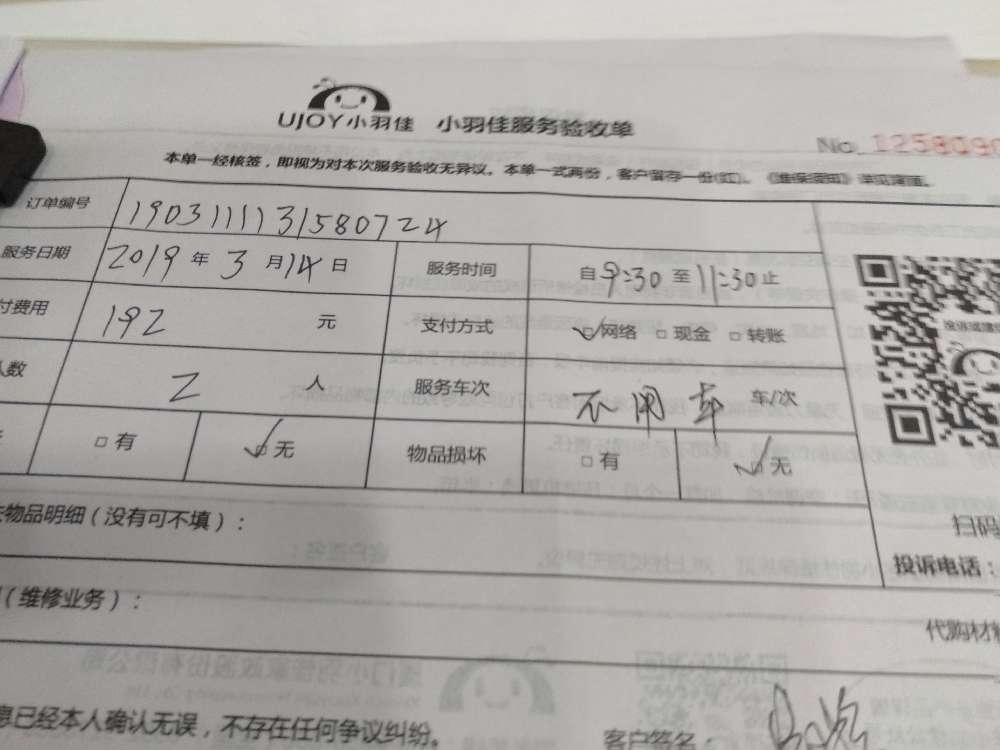 UJOY小羽佳 小羽佳服务验收单
No 1258090
本单一经核签，即视为对本次服务验收无异议。本单一式两份，客户留存一份(红)。《维保须知》详见背面。
订单编号 1903111131580724
服务日期 2019 年 3 月 14 日 服务时间 自 9:30 至 11:30 止
付费用 192 元 支付方式 ☑网络 □现金 □转账
人数 2 人 服务车次 不用车 车/次
□有 ☑无 物品损坏 □有 ☑无
物品明细（没有可不填）：
扫码
投诉电话：
（维修业务）：
代购材
息已经本人确认无误，不存在任何争议纠纷。
客户签名：